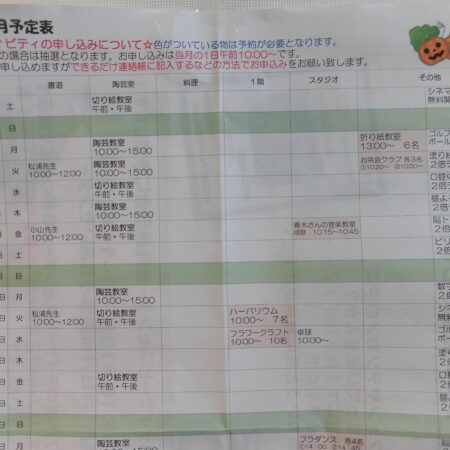 月予定表
ィビティの申し込みについて☆色がついている物は予約が必要となります。
の場合は抽選となります。お申し込みは当月の1日午前10:00～
申し込めますができるだけ連絡帳に記入するなどの方法でお申込みをお願い致します。
書道 陶芸室 料理 1階 スタジオ その他
土 切り絵教室 シネマ
午前・午後 無料開
日
月 陶芸教室 折り紙教室 ゴルフ
10:00～15:00 13:00～ 6名 ボール
火 松浦先生 陶芸教室 お茶会クラブ 各3名 塗り絵
10:00～12:00 10:00～15:00 ①10:20～ ②10:50～ 2倍
水 切り絵教室 口腔体
午前・午後 2倍
木 陶芸教室 脳よ
10:00～15:00 2倍
金 小山先生 切り絵教室 青木さんの音楽教室 脳ト
10:00～12:00 午前・午後 回数 10:15～10:45 2倍
土 ビリ
2倍
日
日 月 陶芸教室 数字
10:00～15:00 2倍
日 火 松浦先生 切り絵教室 ハーバリウム シネ
10:00～12:00 午前・午後 10:00～ 7名 無料
日 水 フラワークラフト 卓球 ゴル
10:00～ 10名 10:00～ ボー
日 木 塗り
2倍
日 金 切り絵教室 口腔
午前・午後 2倍
日 土
日 日
日 月 陶芸教室 フラダンス 各4名
10:00～15:00